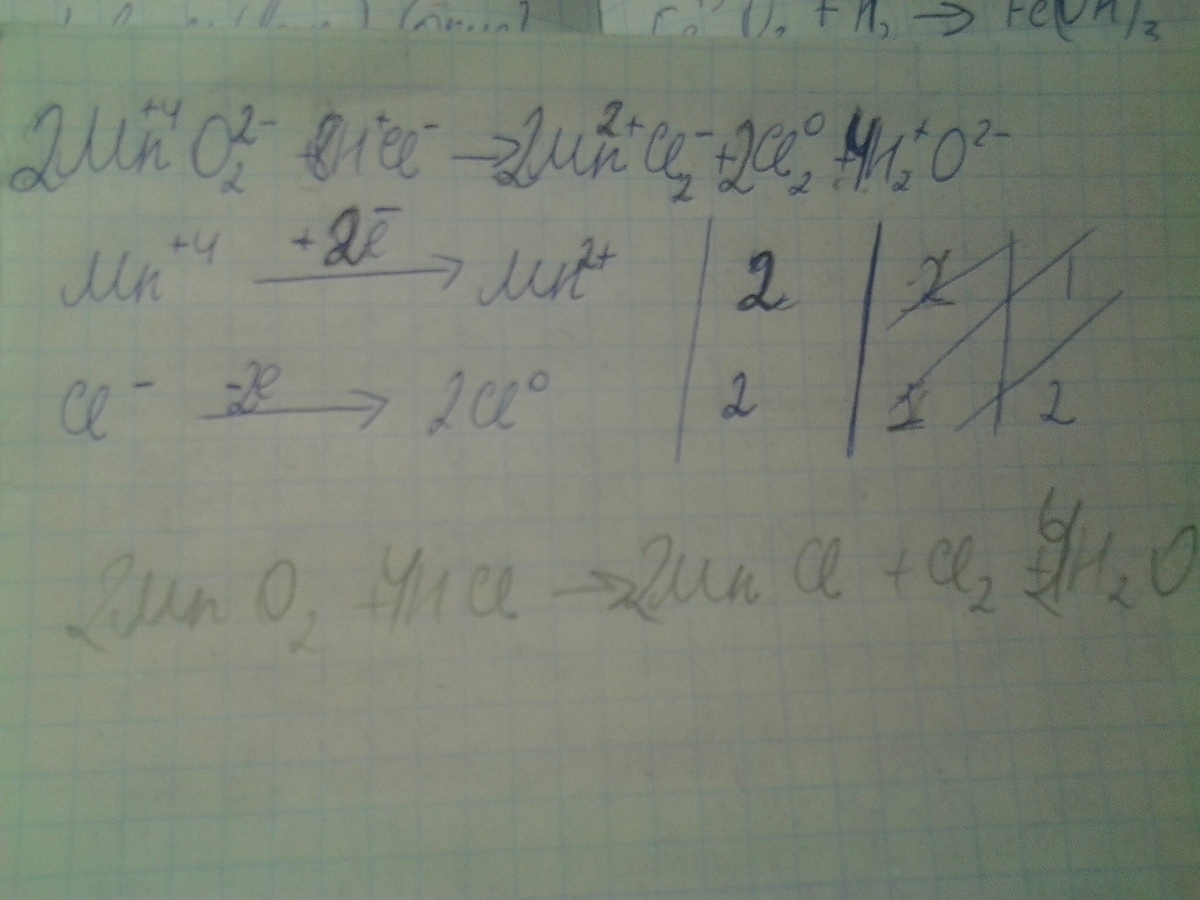 + H₂ → Fe(OH)₃
2Mn⁺⁴O₂²⁻ + 8H⁺Cl⁻ → 2Mn²⁺Cl₂⁻ + 2Cl₂⁰ + 4H₂⁺O²⁻
Mn⁺⁴ +2e̅ → Mn²⁺ | 2 | 2 | 1
Cl⁻ -2e → 2Cl⁰ | 2 | 1 | 2
2MnO₂ + 4HCl → 2MnCl + Cl₂ + H₂O